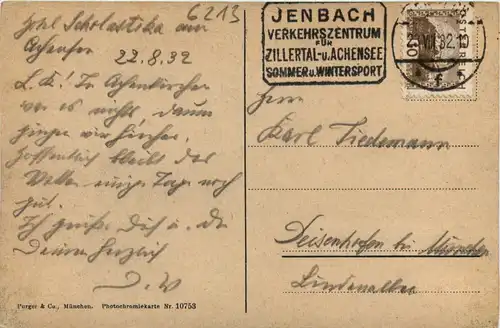 6213
Hotel Scholastika am
Achensee
22.8.32
L. K.! In Achenkirchen
war es nichts darum
zogen wir hierher.
Hoffentlich bleibt das
Wetter einige Tage noch
gut.
Ich grüße Dich u. die
Deinen herzlich
D. W
JENBACH
VERKEHRSZENTRUM
FÜR
ZILLERTAL- u. ACHENSEE
SOMMER u. WINTERSPORT
Herrn
Karl Tiedemann
Deisenhofen bei München
Lindenallee
Purger & Co., München. Photochromiekarte Nr. 10753